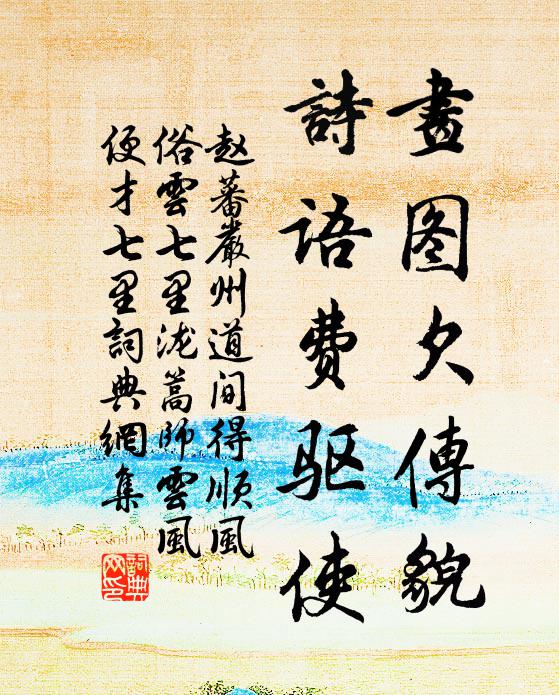 畫图久傳貌
詩語費驱使
赵蕃嚴州道间得顺风
俗雲七里泷篙师雲風
便才七里詞典網集
詞典網印